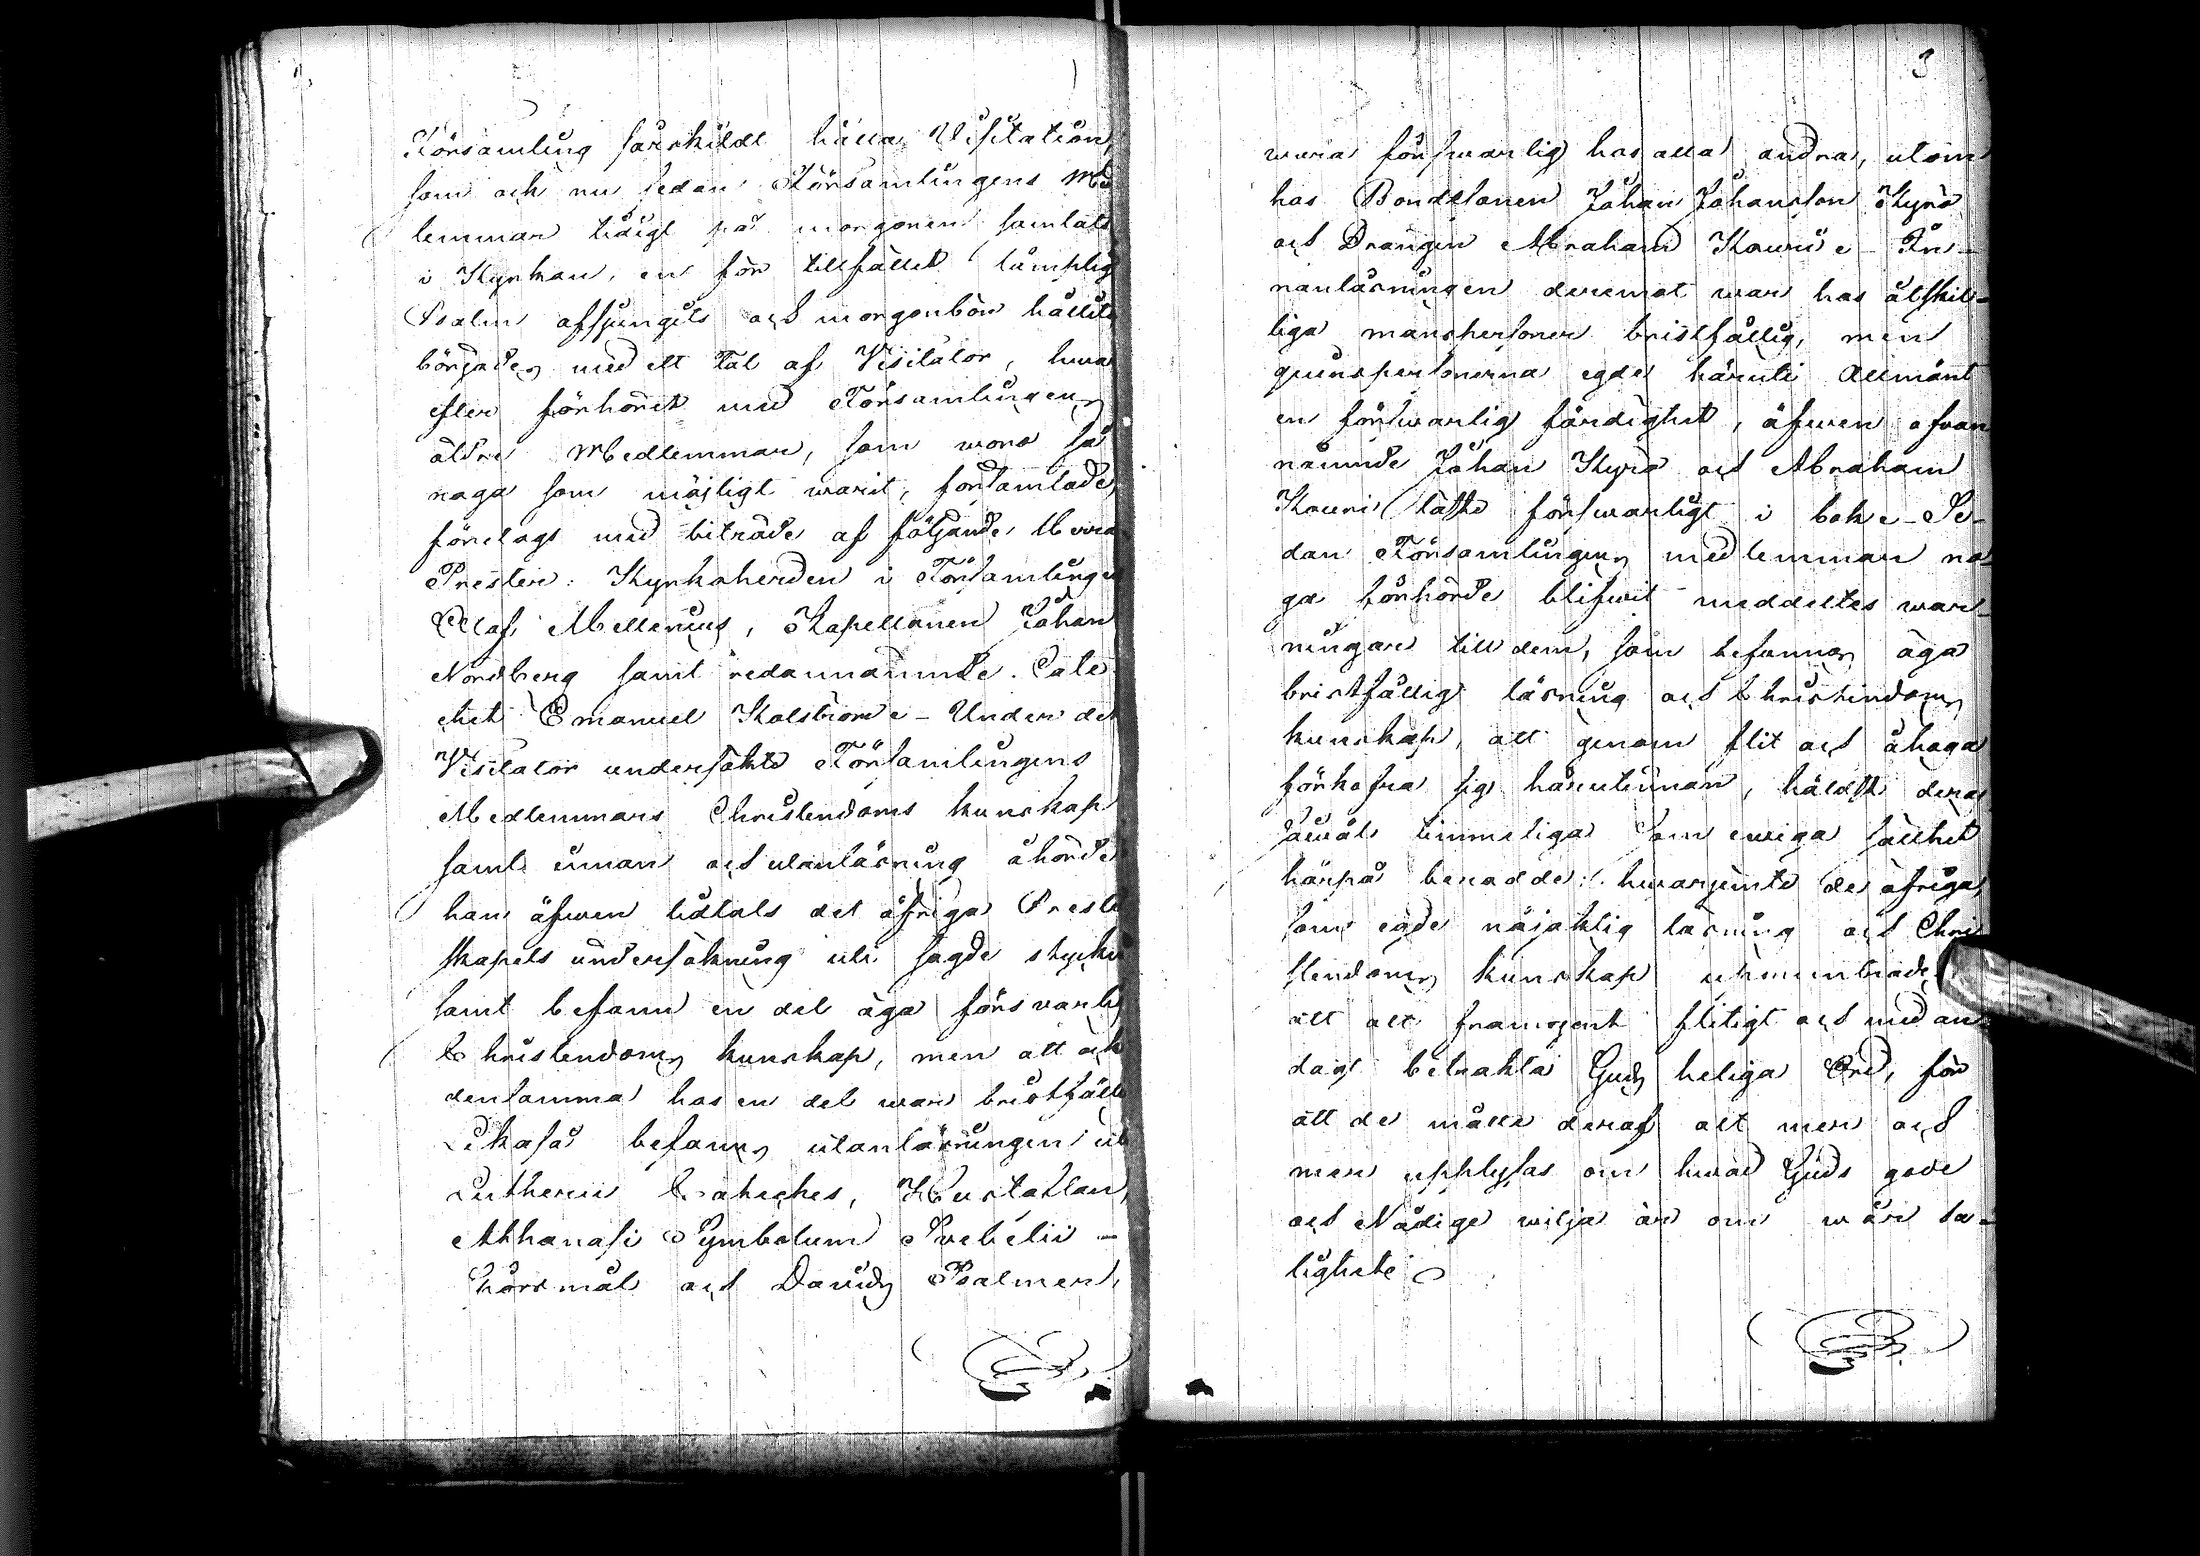 Församling särskildt hålla Visitation,
som ock nu sedan Församlingens Med
lemmar tidigt på morgonen samlats
i Kyrkan, en för tillfället lämplig
Psalm afsjungits och morgonbön hållits
börjades med ett Tal af Visitator, hwar
efter förhöret med Församlingens
äldre Medlemmar, som woro så
noga som möjligt warit, församlade,
företogs med biträde af följande Herra
Prester: Kyrkoherden i Församlingen
Olof Mellenius, Kapellanen Johan
Nordberg samt redannämnde Cate
chet Emanuel Kolström - Under det
Visitator undersökte Församlingens
Medlemmars Christendoms kunskap
samt innan och utanläsning åhörde
han äfwen tidtals det öfriga Preste
skapets undersökning uti sagde stycken
samt befann en del äga försvarlig
Christendoms kunskap, men att ock
densamma hos en del war bristfällig
Likaså befanns utanläsningen uti
Lutheri Cateches, Hustaflan,
Athanasi Symbolum Svebelii
Spörsmål och Davids Psalmer,
3
wara förswarlig hos alla andra, utom
hos Bondesonen Johan Johansson Kyrö
och Drängen Abraham Kauri - In-
nanläsningen deremot war hos åtskil-
liga manspersoner bristfällig, men
qwinspersonerna egde häruti Allmänt
en förswarlig färdighet, äfwen ofvan
nämnde Johan Kyrö och Abraham
Kauri läste förswarligt i bok - Se-
dan Församlingens medlemmar no
ga förhörde blifwit meddeltes war-
ningar till dem, som befunnos äga
bristfällig läsning och Christendoms
kunskap, att genom flit och åhoga
förkofra sig härutinnan, häldst deras
såwäl timmeliga som ewiga sällhet
härpå berodde: hwarjemte de öfriga,
som egde nöjaktig läsning och Chri
stendoms kunskap uppmuntrades
att allt framgent flitigt och med an
dagt betrakta Guds heliga Ord, för
att de måtte deraf allt mer och
mer upplysas om hwad Guds gode
och Nådige wilja är om wår sa-
lighet